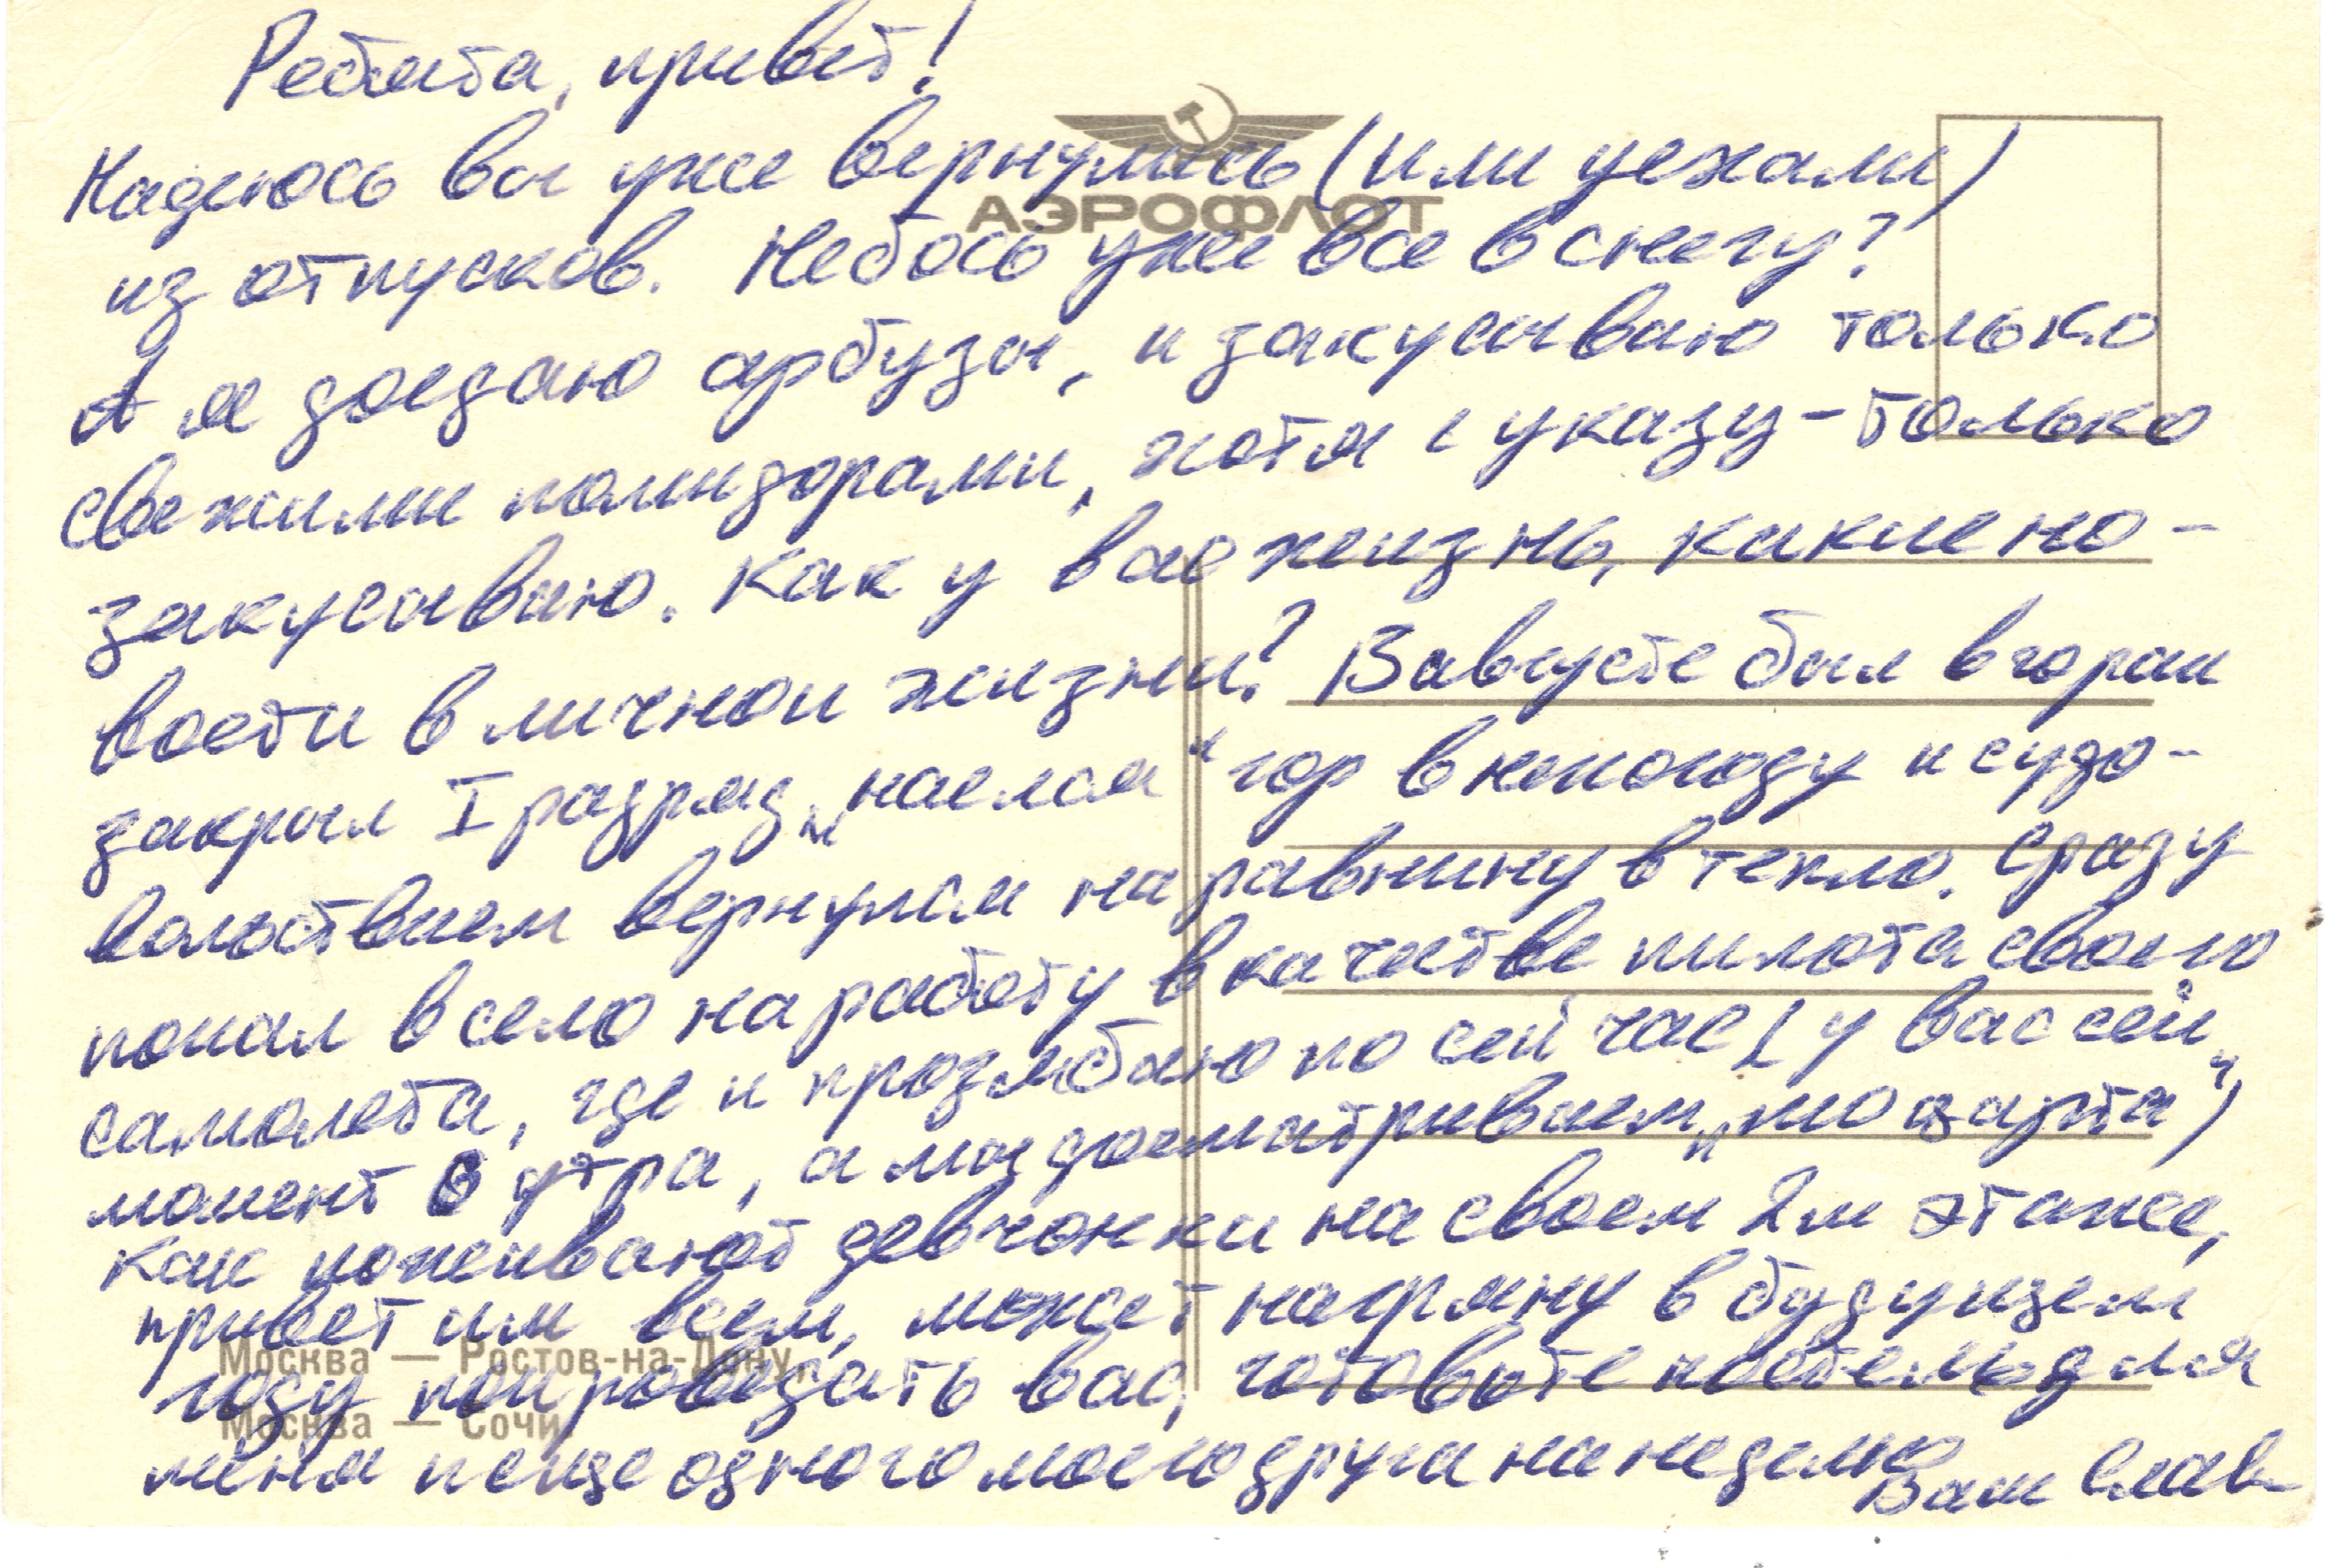 Ребята, привет!
АЭРОФЛОТ
Надеюсь вы уже вернулись (или уехали)
из отпусков. Небось уже все в снегу?
А я доедаю арбузы, и закусываю только
свежими помидорами, хотя к указу - только
закусываю. Как у вас жизнь, какие но-
вости в личной жизни? В августе был в горах
закрыл I разряд, „наелся“ гор в непогоду и с удо-
вольствием вернулся на равнину в тепло. Сразу
попал в село на работу в качестве пилота своего
самолета, где и прозябаю по сей час (у вас сей
момент 6 утра, а мы досматриваем „Моцарта“)
Как поживают девчонки на своем 2м этаже,
привет им всем, может нагряну в будущем
году попроведать вас, готовьте постель для
меня и еще одного моего друга на неделю
Ваш Слав
Москва — Ростов-на-Дону,
Москва — Сочи.